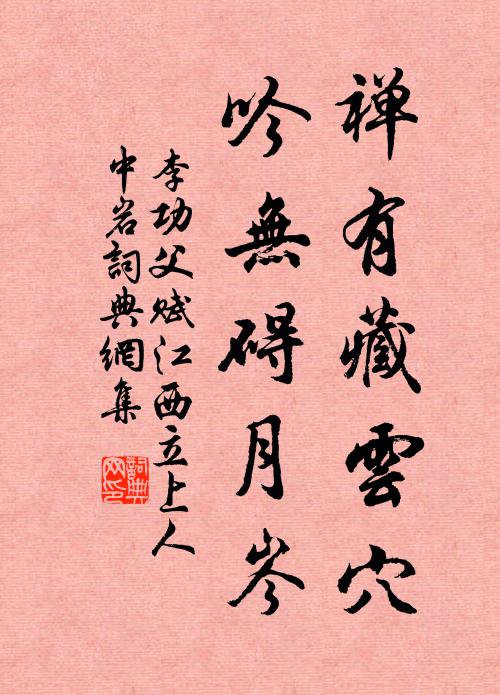 禅有藏雲穴
吟無碍月岑
李功父赋江西立上人
中岩詞典網集
詞典网印